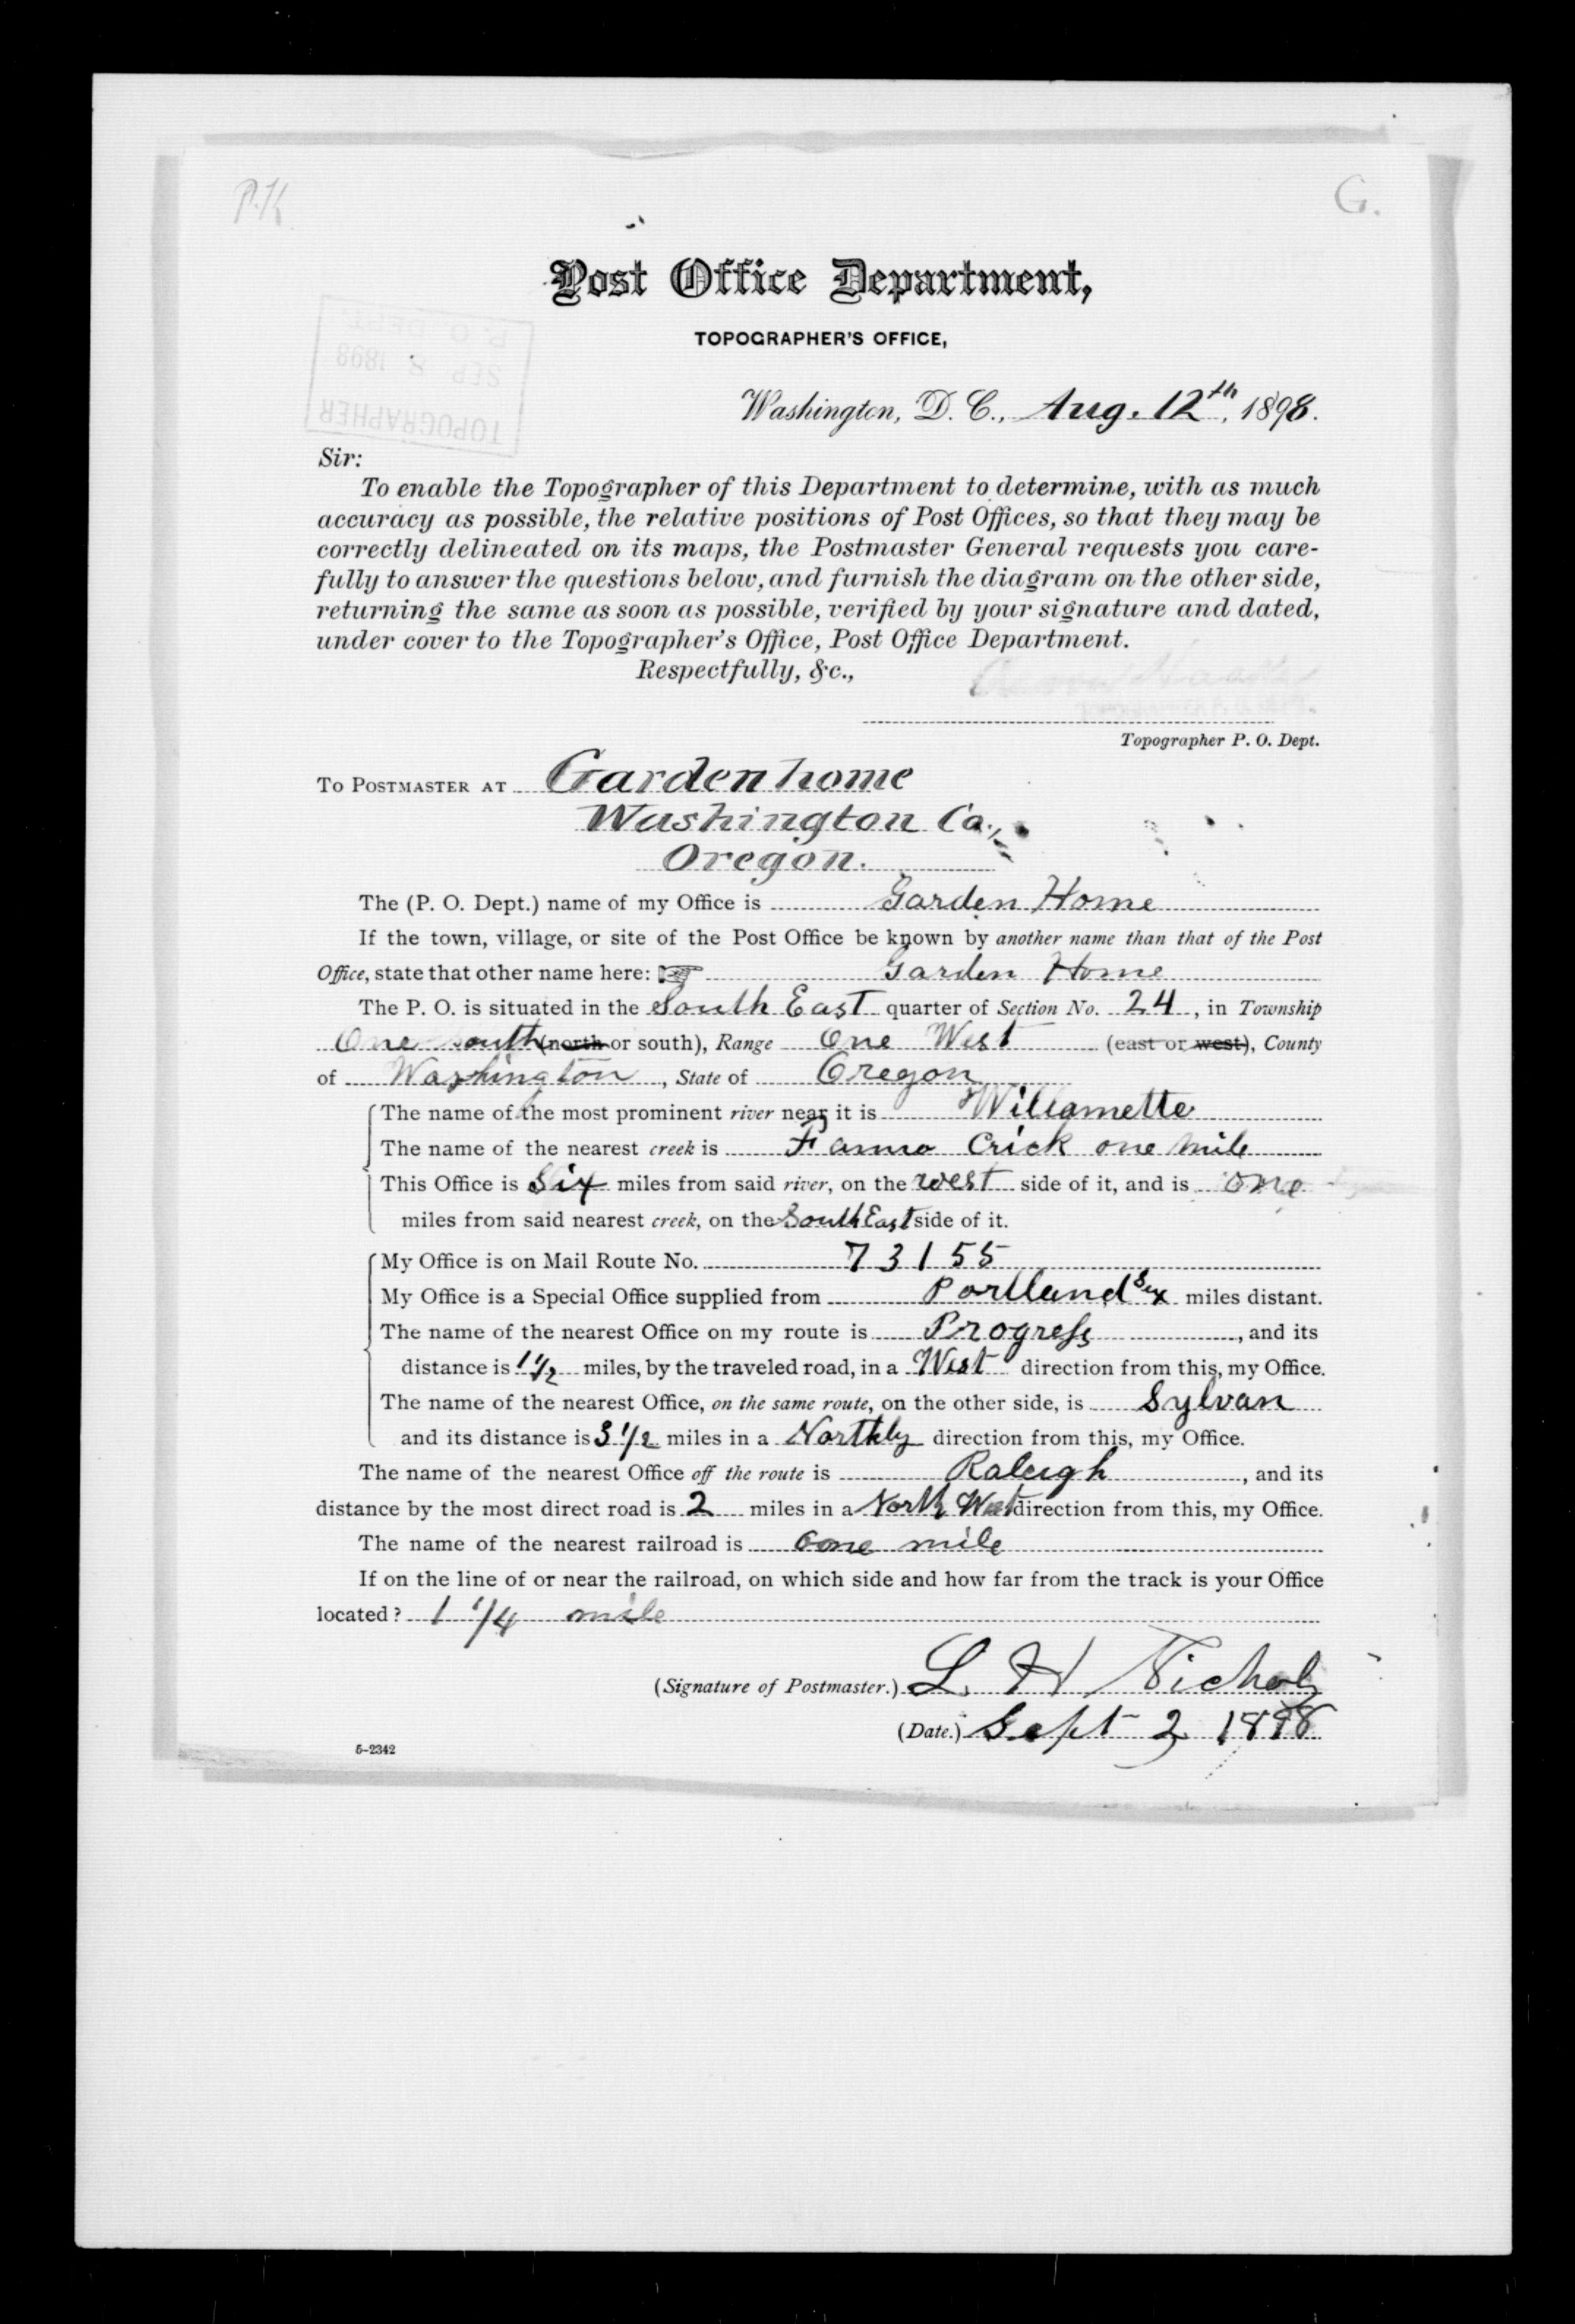 P.K
G.
Post Office Department,
TOPOGRAPHER'S OFFICE,
TOPOGRAPHER
SEP 8 1898
P. O. DEPT.
Washington, D. C., Aug. 12th, 1898.
Sir:
To enable the Topographer of this Department to determine, with as much
accuracy as possible, the relative positions of Post Offices, so that they may be
correctly delineated on its maps, the Postmaster General requests you care-
fully to answer the questions below, and furnish the diagram on the other side,
returning the same as soon as possible, verified by your signature and dated,
under cover to the Topographer's Office, Post Office Department.
Respectfully, &c.,
Topographer P. O. Dept.
To Postmaster at Gardenhome
Washington Co.,
Oregon.
The (P. O. Dept.) name of my Office is Garden Home
If the town, village, or site of the Post Office be known by another name than that of the Post
Office, state that other name here: ☞ Garden Home
The P. O. is situated in the South East quarter of Section No. 24, in Township
One south (north or south), Range One West (east or west), County
of Washington, State of Oregon
The name of the most prominent river near it is Willamette
The name of the nearest creek is Fanno Crick one mile
This Office is Six miles from said river, on the west side of it, and is one
miles from said nearest creek, on the South East side of it.
My Office is on Mail Route No. 73155
My Office is a Special Office supplied from Portland Six miles distant.
The name of the nearest Office on my route is Progress, and its
distance is 1 1/2 miles, by the traveled road, in a West direction from this, my Office.
The name of the nearest Office, on the same route, on the other side, is Sylvan
and its distance is 3 1/2 miles in a Northly direction from this, my Office.
The name of the nearest Office off the route is Raleigh, and its
distance by the most direct road is 2 miles in a North West direction from this, my Office.
The name of the nearest railroad is one mile
If on the line of or near the railroad, on which side and how far from the track is your Office
located? 1 1/4 mile
(Signature of Postmaster.) L. H Nichols
(Date.) Sept 2 1898
5-2342